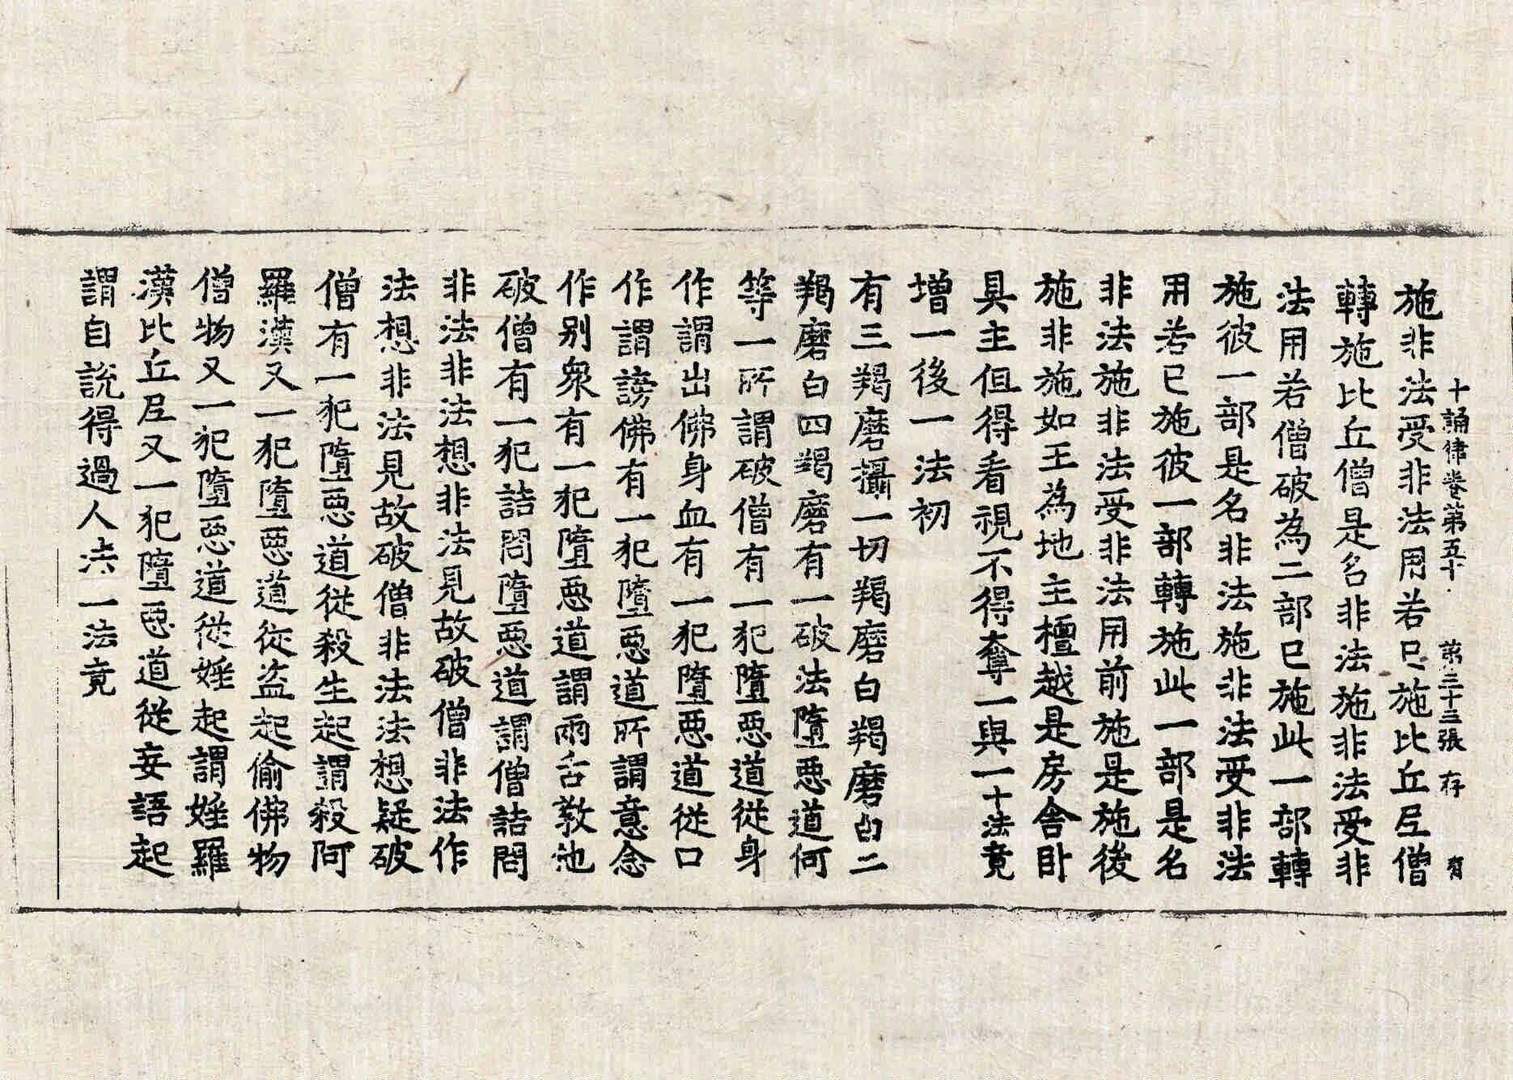 十誦律卷第五十 第三十三張 存
施非法受非法用若已施比丘尼僧
轉施比丘僧是名非法施非法受非
法用若僧破為二部已施此一部轉
施彼一部是名非法施非法受非法
用若已施彼一部轉施此一部是名
非法施非法受非法用前施是施後
施非施如王為地主檀越是房舍卧
具主但得看視不得奪一與一十法竟
增一後一法初
有三羯磨攝一切羯磨白羯磨白二
羯磨白四羯磨有一破法墮惡道何
等一所謂破僧有一犯墮惡道從身
作謂出佛身血有一犯墮惡道從口
作謂謗佛有一犯墮惡道所謂意念
作別衆有一犯墮惡道謂兩舌教他
破僧有一犯詰問墮惡道謂僧詰問
非法非法想非法見故破僧非法作
法想非法見故破僧非法法想疑破
僧有一犯墮惡道從殺生起謂殺阿
羅漢又一犯墮惡道從盜起偷佛物
僧物又一犯墮惡道從婬起謂婬羅
漢比丘尼又一犯墮惡道從妄語起
謂自說得過人法一法竟